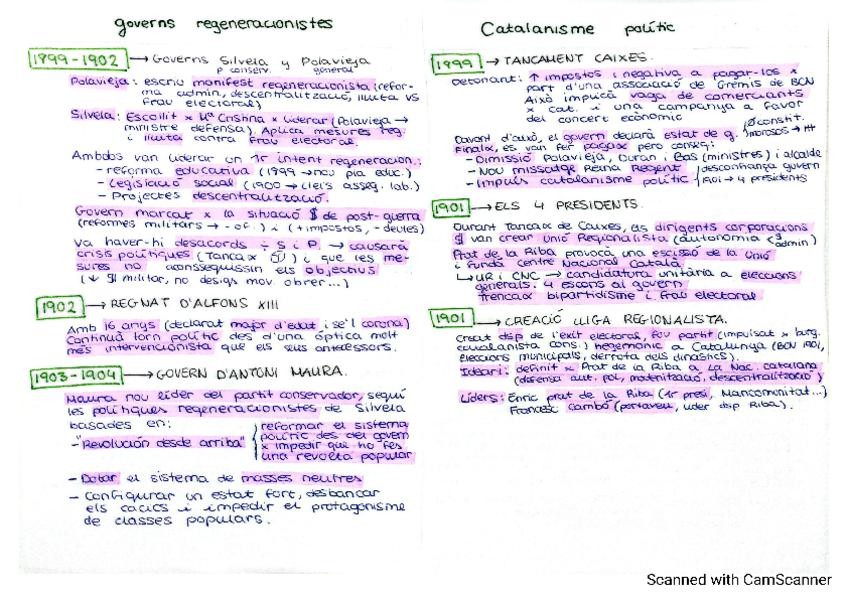 governs regeneracionistes
1899-1902 → GOVERNS Silvela y Polavieja
p conserv. general
Polavieja: escriu manifest regeneracionista (refor-
ma admin, descentralització, lluita vs
frau electoral)
Silvela: Escollit x Mª Cristina x liderar (Polavieja →
ministre defensa). Aplica mesures reg.
i lluita contra frau electoral.
Ambdós van liderar un 1r intent regeneracion.:
- reforma educativa (1899 → nou pla educ.)
- Legislació social (1900 → lleis asseg. lab.)
- Projectes descentralització.
Govern marcat x la situació $ de post-guerra
(reformes militars → -of.) i (+impostos, -deutes)
Va haver-hi desacords ÷ S i P. → causarà
crisis polítiques (Tancax) i que les me-
sures no aconsseguissin els objectius
(↓ $ militar, no desigs mov. obrer...)
1902 → REGNAT D'ALFONS XIII
Amb 16 anys (declarat major d'edat i se'l corona)
Continuà torn polític des d'una òptica molt
més intervencionista que els seus antecessors.
1903-1904 → GOVERN D'ANTONI MAURA.
Maura nou líder del partit conservador, seguí
les polítiques regeneracionistes de Silvela
basades en:
- "Revolución desde arriba"
reformar el sistema
polític des del govern
x impedir que ho fes
una revolta popular
- Dotar el sistema de masses neutres
- Configurar un estat fort, desbancar
els cacics i impedir el protagonisme
de classes populars.
Catalanisme polític
1899 → TANCAMENT CAIXES.
Detonant: ↑ impostos i negativa a pagar-los x
part d'una associació de Gremis de BCN
Això implicà vaga de comerciants
x cat. i una campanya a favor
del concert econòmic
Davant d'això, el govern declarà estat de g.
Finalix, es van fer pagar però conseg:
- Dimissió Polavieja, Duran i Bas (ministres) i alcalde
- Nou missatge Reina Regent
desconfiança govern
- Impuls catalanisme polític
→ 4 presidents
1901 → ELS 4 PRESIDENTS.
Durant Tancax de Caixes, els dirigents corporacions
$ van crear Unió Regionalista (autonomia < $ admin)
Prat de la Riba provocà una escissió de la Unió
i fundà Centre Nacional Català
↳ UR i CNC → candidatura unitària a eleccions
generals. 4 escons al govern
trencax bipartidisme i frau electoral
1901 → CREACIÓ LLIGA REGIONALISTA.
Creat dsp de l'èxit electoral, fou partit (impulsat x burg.
catalanista cons.) hegemònic a Catalunya (BCN 1901,
eleccions municipals, derrota dels dinàstics).
Ideari: definit x Prat de la Riba a La Nac. catalana
(defensa aut. pol, modernització, descentralització)
Líders: Enric prat de la Riba (1r presi, Mancomunitat...)
Francesc Cambó (portaveu, líder dsp Riba).
Scanned with CamScanner